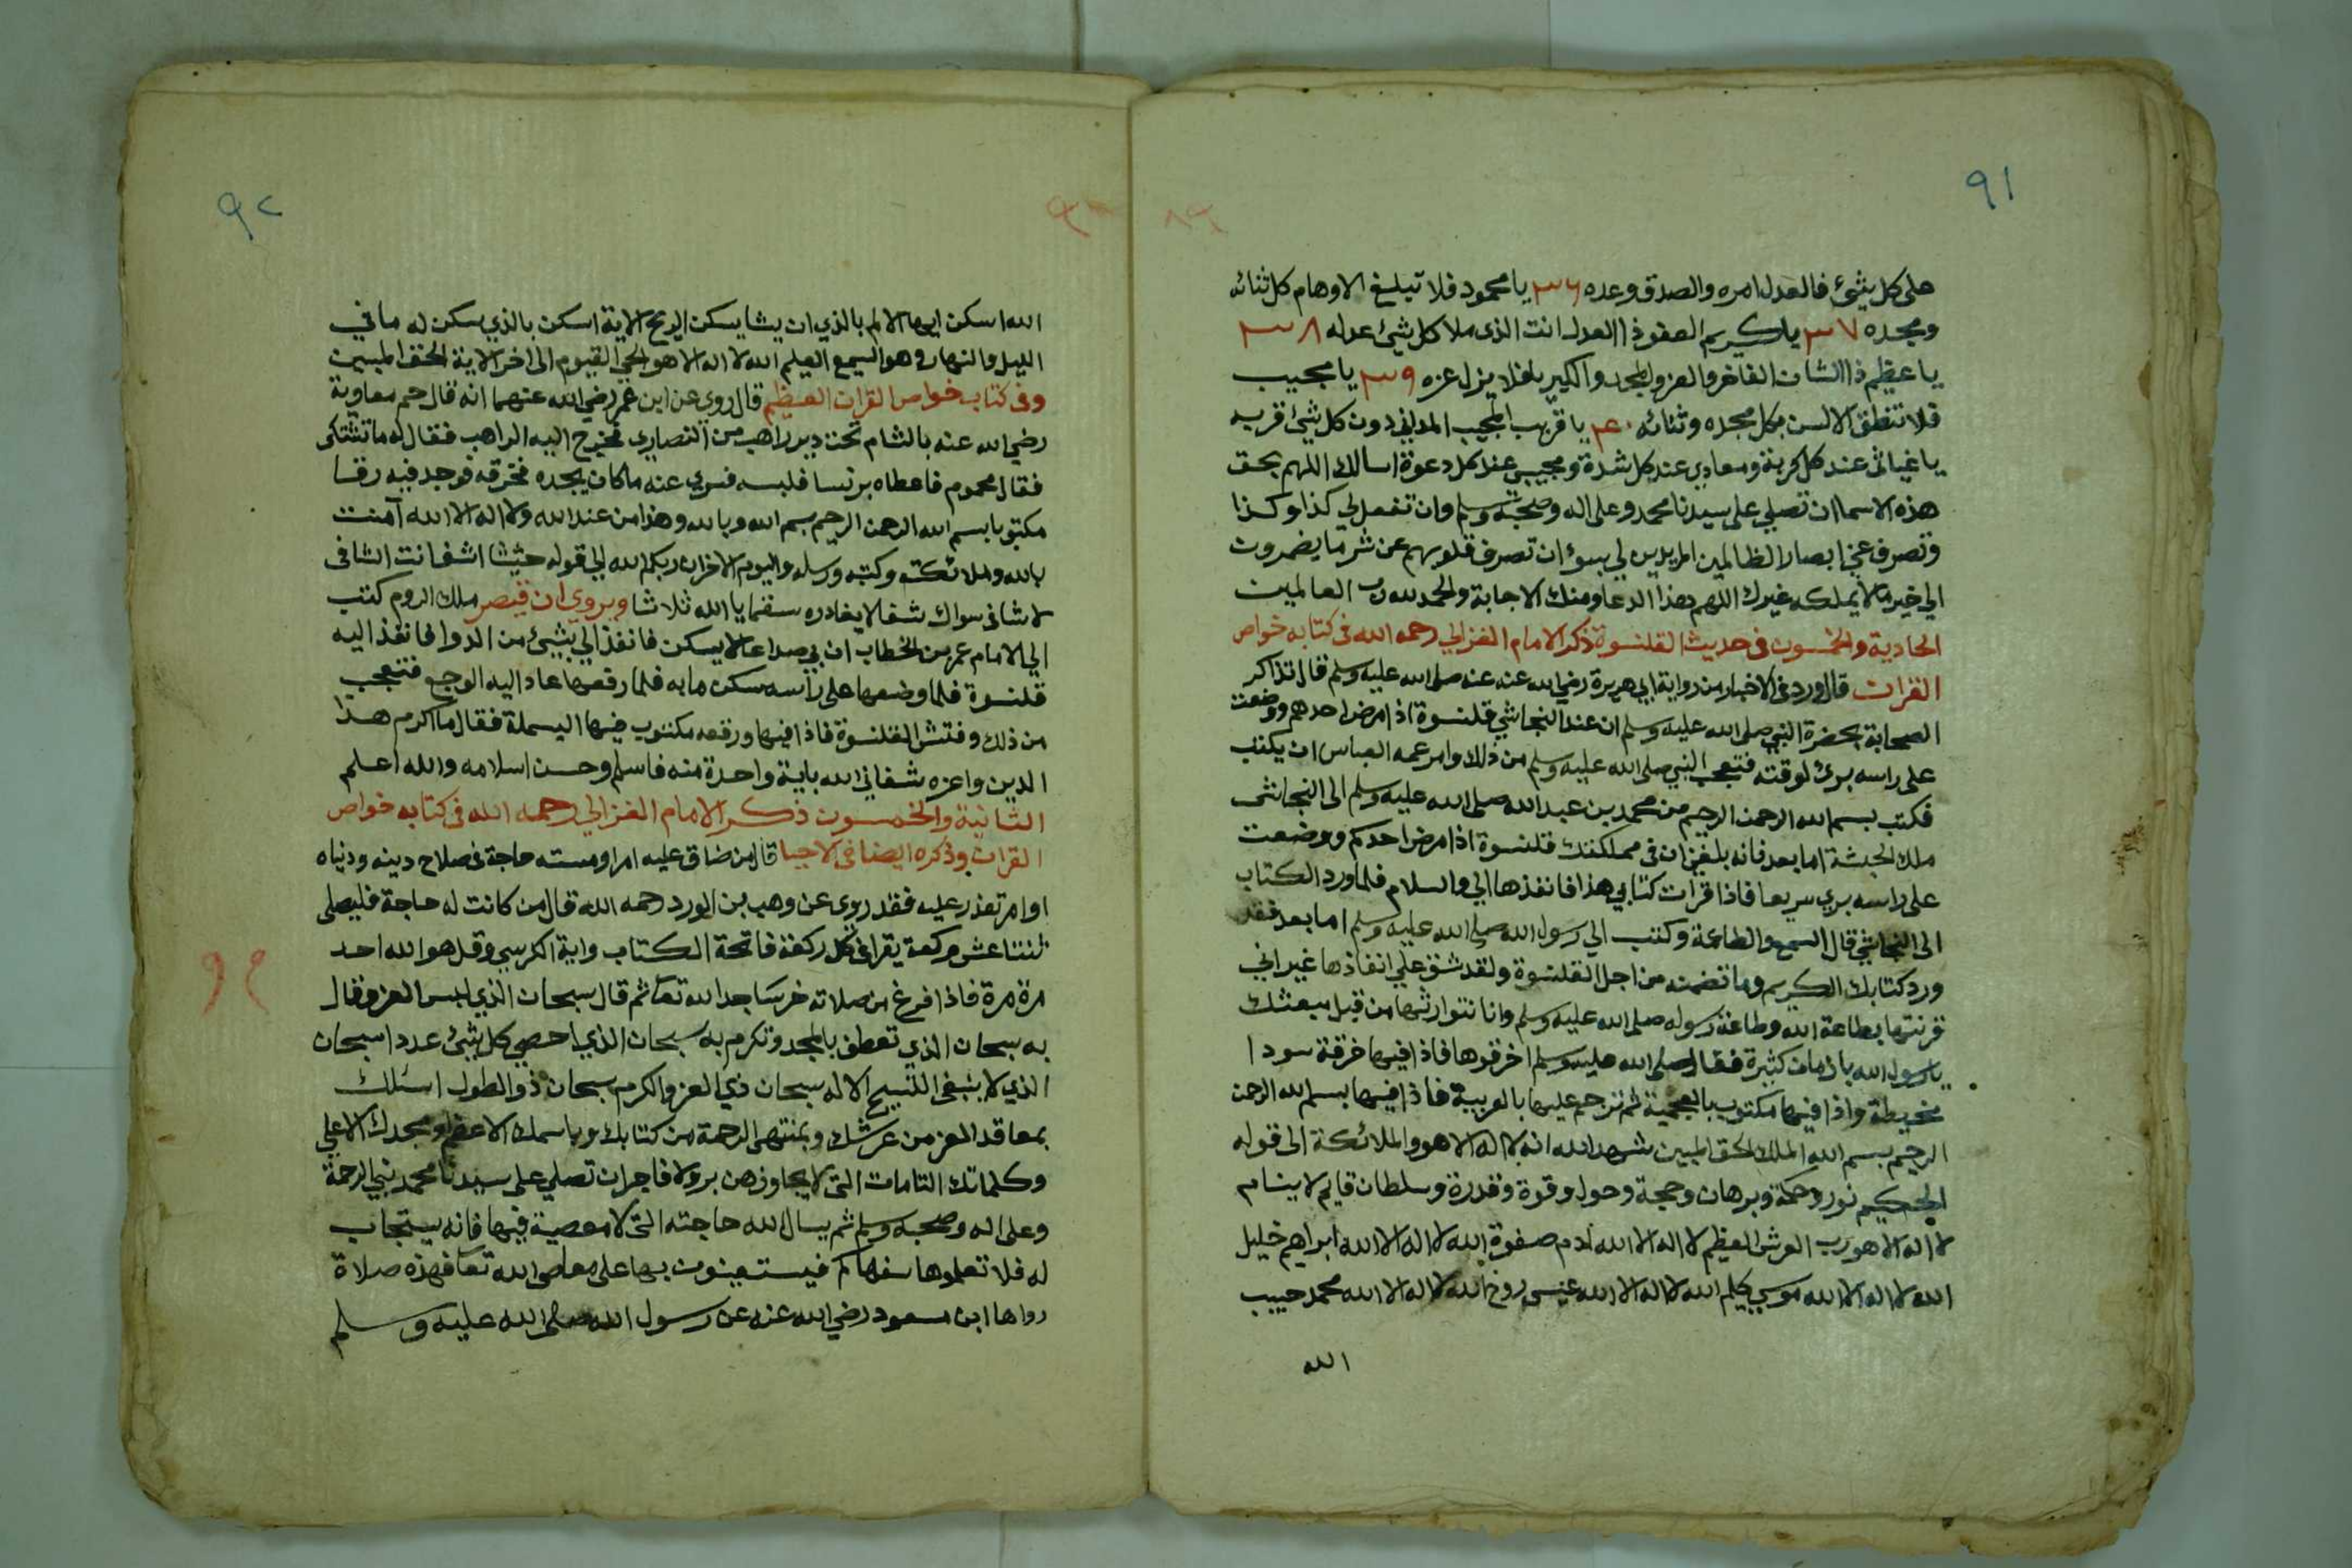 ٩١
على كل شيئ فالعدل امره والصدق وعده ٣٦ يا محمود فلا تبلغ الاوهام كل ثنائه
ومجده ٣٧ يا كريم العفو ذا العدل انت الذى ملا كل شيئ عدله ٣٨
يا عظيم ذا الشان الفاخر والعز والمجد والكبريا فلا يزل عزه ٣٩ يا مجيب
فلا تنطق الالسن بكل مجده وثنائه ٤٠ يا قريب المجيب المدانى دون كل شيئ قربه
يا غياثى عند كل كربة ومعاذي عند كل شدة ومجيبى عند كل دعوة اسالك اللهم بحق
هذه الاسما ان تصلى على سيدنا محمد وعلى اله وصحبه وسلم وان تفعل لي كذا وكذا
وتصرف عنى ابصار الظالمين المريدين لي بسوء ان تصرف قلوبهم عن شر ما يضمرون
الى خير ما لا يملكه غيرك اللهم هذا الدعا ومنك الاجابة والحمد لله رب العالمين
الحادية والخمسون فى حديث القلنسوة ذكر الامام الغزالي رحمه الله فى كتابه خواص
القران قال ورد فى الاخبار من رواية ابي هريرة رضي الله عنه عنه صلى الله عليه وسلم قال تذاكر
الصحابة بحضرة النبي صلى الله عليه وسلم ان عند النجاشي قلنسوة اذا مرض احدهم ووضعت
على راسه برئ لوقته فتعجب النبي صلى الله عليه وسلم من ذلك وامر عمه العباس ان يكتب
فكتب بسم الله الرحمن الرحيم من محمد بن عبد الله صلى الله عليه وسلم الى النجاشى
ملك الحبشة اما بعد فانه بلغني ان فى مملكتك قلنسوة اذا مرض احدكم ووضعت
على راسه بري سريعا فاذا قرات كتابي هذا فانفذها الي والسلام فلما ورد الكتاب
الى النجاشي قال السمع والطاعة وكتب الي رسول الله صلى الله عليه وسلم اما بعد فقد
ورد كتابك الكريم وما تضمنه من اجل القلنسوة ولقد شق علي انفاذها غير اني
قرنتها بطاعة الله وطاعة رسوله صلى الله عليه وسلم وانا نتوارثها من قبل مبعثك
يا رسول الله بازمان كثيرة فقال صلى الله عليه وسلم اخرقوها فاذا فيها خرقة سودا
مخيطة واذا فيها مكتوب بالعجمية ثم ترجم عليها بالعربية فاذا فيها بسم الله الرحمن
الرحيم بسم الله الملك الحق المبين شهد الله انه لا اله الا هو والملائكة الى قوله
الحكيم نور وحكمة وبرهان وحجة وحول وقوة وقدرة وسلطان قايم لا ينام
لا اله الا هو رب العرش العظيم لا اله الا الله ادم صفوة الله لا اله الا الله ابراهيم خليل
الله لا اله الا الله موسى كليم الله لا اله الا الله عيسى روح الله لا اله الا الله محمد حبيب
الله
٩٢
الله اسكن ايها الالم بالذي ان يشا يسكن الريح الاية اسكن بالذي سكن له ما في
الليل والنهار وهو السميع العليم الله لا اله الا هو الحي القيوم الى اخر الاية الحق المبين
وفى كتاب خواص القران العظيم قال روي عن ابن عمر رضي الله عنهما انه قال حم معاوية
رضي الله عنه بالشام تحت دير راهب من النصاري فخرج اليه الراهب فقال له ما تشتكى
فقال محموم فاعطاه برنسا فلبسه فسري عنه ما كان يجده فخرقه فوجد فيه رقا
مكتوبا بسم الله الرحمن الرحيم بسم الله وبالله وهذا من عند الله ولا اله الا الله آمنت
بالله وملائكته وكتبه ورسله واليوم الاخر ان ربكم الله الي قوله حثيثا اشف انت الشافى
لا شافى سواك شفا لا يغادره سقما يا الله ثلاثا ويروي ان قيصر ملك الروم كتب
الي الامام عمر بن الخطاب ان بي صداعا لا يسكن فانفذ الي بشيئ من الدوا فانفذ اليه
قلنسوة فلما وضعها على راسه سكن ما به فلما رفعها عاد اليه الوجع فتعجب
من ذلك وفتش القلنسوة فاذا فيها ورقعه مكتوب فيها البسملة فقال ما اكرم هذا
الدين واعزه شفاني الله باية واحدة منه فاسلم وحسن اسلامه والله اعلم
الثانية والخمسون ذكر الامام الغزالي رحمه الله فى كتابه خواص
القران وذكره ايضا فى الاحيا قال من ضاق عليه امر او مسته حاجة فى صلاح دينه ودنياه
او امر تعذر عليه فقد روي عن وهب بن الورد رحمه الله قال من كانت له حاجة فليصلى
ثنتا عشر ركعة يقرا فى كل ركعة فاتحة الكتاب واية الكرسي وقل هو الله احد
مرة مرة فاذا فرغ من صلاته خر ساجدا لله تعا ثم قال سبحان الذي لبس العز وقال
به سبحان الذي تعطف بالمجد وتكرم به سبحان الذي احصي كل شيئ عددا سبحان
الذي لا ينبغى التسبيح الا له سبحان ذي العز والكرم سبحان ذو الطول اسئلك
بمعاقد العز من عرشك وبمنتهى الرحمة من كتابك وباسمك الاعظم ومجدك الاعلي
وكلماتك التامات التى لا يجاوزهن بر ولا فاجر ان تصلي على سيدنا محمد نبي الرحمة
وعلى اله وصحبه وسلم ثم يسال الله حاجته التى لا معصية فيها فانه يستجاب
له فلا تعلموها سفهاكم فيستعينون بها على معاصى الله تعا فهذه صلاة
رواها ابن مسعود رضي الله عنه عن رسول الله صلى الله عليه وسلم